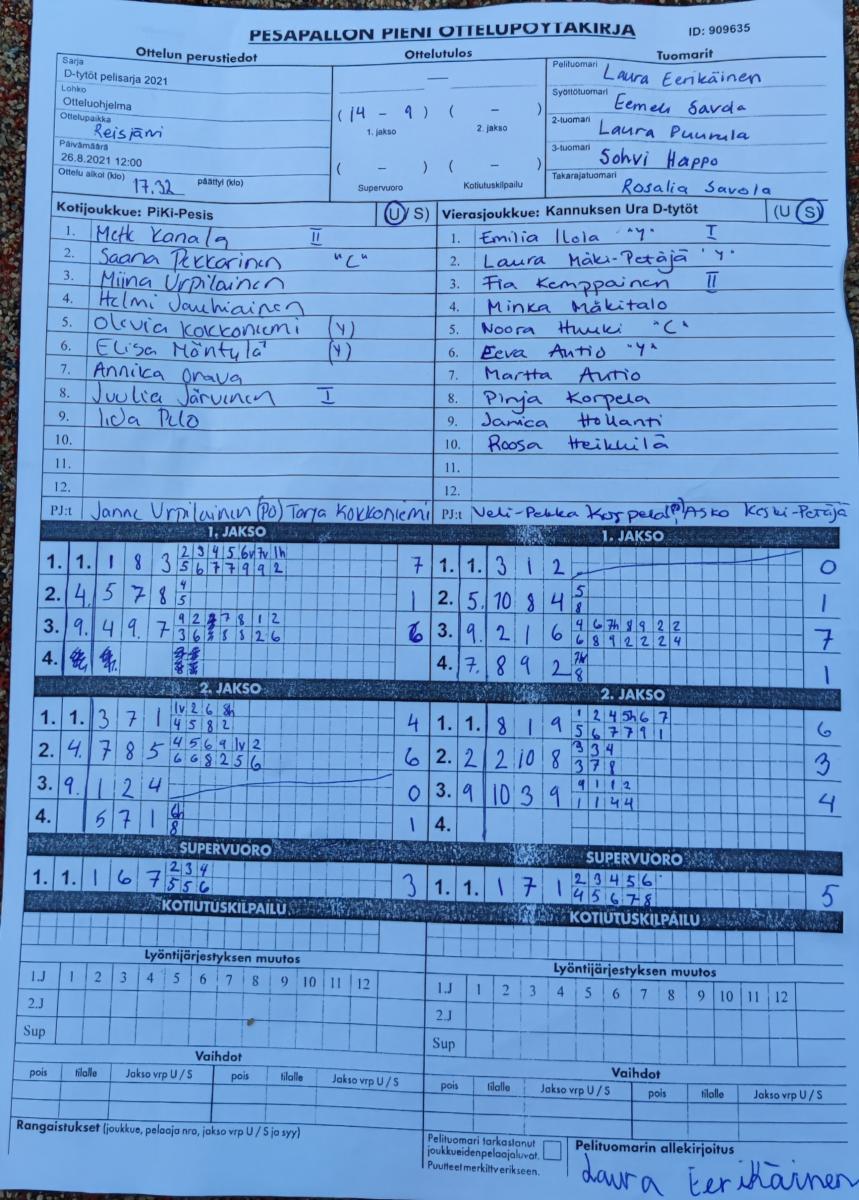 PESÄPALLON PIENI OTTELUPÖYTÄKIRJA
ID: 909635
Ottelun perustiedot
Sarja
D-tytöt pelisarja 2021
Lohko
Otteluohjelma
Ottelupaikka
Reisjärvi
Päivämäärä
26.8.2021 12:00
Ottelu alkoi (klo) 17.32 päättyi (klo)
Ottelutulos
—
(14 - 9) ( - )
1. jakso 2. jakso
( - ) ( - )
Supervuoro Kotiutuskilpailu
Tuomarit
Pelituomari Laura Eerikäinen
Syöttötuomari Eemeli Savola
2-tuomari Laura Puurula
3-tuomari Sohvi Happo
Takarajatuomari Rosalia Savola
Kotijoukkue: PiKi-Pesis (U / S)
1. Metk Kanala II
2. Saana Pekkarinen "C"
3. Miina Urpilainen
4. Helmi Jauhiainen
5. Olivia Kokkoniemi (Y)
6. Elisa Mäntylä (Y)
7. Annika Orava
8. Juulia Järvinen I
9. Iida Pelo
10.
11.
12.
PJ:t Janne Urpilainen (PO) Tarja Kokkoniemi
Vierasjoukkue: Kannuksen Ura D-tytöt (U S)
1. Emilia Ilola "Y" I
2. Laura Mäki-Petäjä "Y"
3. Fia Kemppainen II
4. Minka Mäkitalo
5. Noora Huuki "C"
6. Eeva Autio "Y"
7. Martta Autio
8. Pinja Korpela
9. Janica Hollanti
10. Roosa Heikkilä
11.
12.
PJ:t Veli-Pekka Korpela Asko Keski-Petäjä
1. JAKSO
1. 1. 1 8 3 2 3 4 5 6v 7v 1h 7
5 6 7 7 9 9 2
2. 4. 5 7 8 4 1
5
3. 9. 4 9 7 9 2 7 8 1 2 6
3 6 8 8 2 6
4.
2. JAKSO
1. 1. 3 7 1 1v 2 6 8h 4
4 5 8 2
2. 4. 7 8 5 4 5 6 9 1v 2 6
6 6 8 2 5 6
3. 9. 1 2 4 0
4. 5 7 1 6h 1
8
SUPERVUORO
1. 1. 1 6 7 2 3 4 3
5 5 6
KOTIUTUSKILPAILU
1. JAKSO
1. 1. 3 1 2 0
2. 5. 10 8 4 5 1
8
3. 9. 2 1 6 4 6 7h 8 9 2 2 7
6 8 9 2 2 2 4
4. 7. 8 9 2 7h 1
8
2. JAKSO
1. 1. 8 1 9 1 2 4 5h 6 7 6
5 6 7 7 9 1
2. 2 2 10 8 3 3 4 3
3 7 8
3. 9 10 3 9 9 1 1 2 4
1 1 4 4
4.
SUPERVUORO
1. 1. 1 7 1 2 3 4 5 6 5
4 5 6 7 8
KOTIUTUSKILPAILU
Lyöntijärjestyksen muutos
1.J 1 2 3 4 5 6 7 8 9 10 11 12
2.J
Sup
Vaihdot
pois tilalle Jakso vrp U / S pois tilalle Jakso vrp U / S
Lyöntijärjestyksen muutos
1.J 1 2 3 4 5 6 7 8 9 10 11 12
2.J
Sup
Vaihdot
pois tilalle Jakso vrp U / S pois tilalle Jakso vrp U / S
Rangaistukset (joukkue, pelaaja nro, jakso vrp U / S ja syy)
Pelituomari tarkastanut
joukkueiden pelaajaluvat.
Puutteet merkittv erikseen.
Pelituomarin allekirjoitus
Laura Eerikäinen